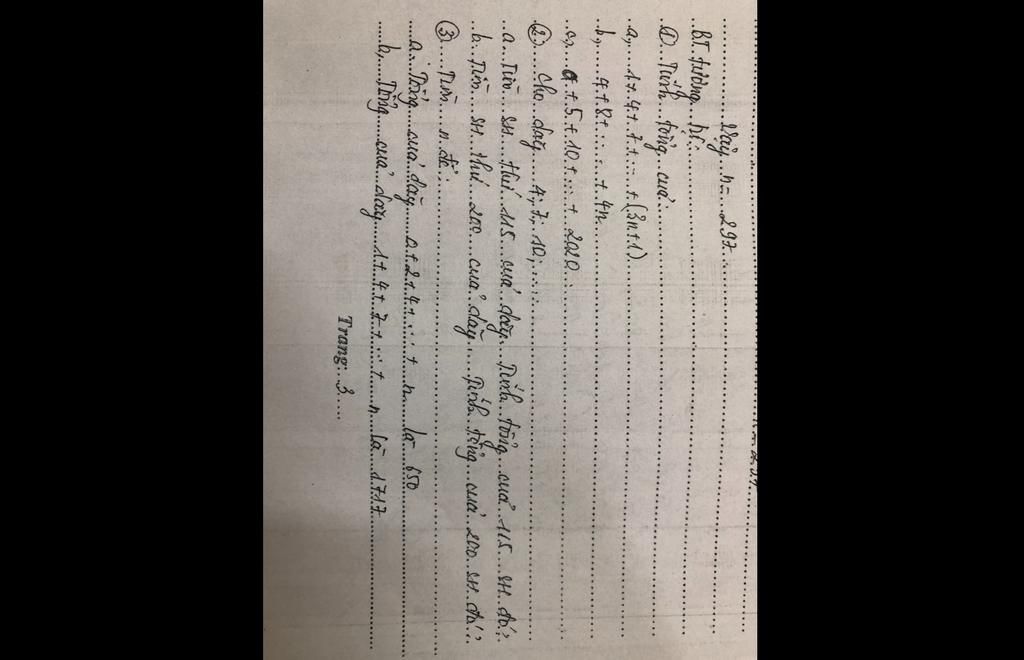 Vậy n = 297
BT tương tự:
① Tính tổng của:
a, 1 + 4 + 7 + ... + (3n+1)
b, 4 + 8 + ... + 4n
c, 0 + 5 + 10 + ... + 2020
② Cho dãy 4; 7; 10; ...
a. Tìm SH thứ 115 của dãy. Tính tổng của 115 SH đó?
b. Tìm SH thứ 200 của dãy. Tính tổng của 200 SH đó?
③ Tìm n để:
a. Tổng của dãy 0 + 2 + 4 + ... + n là 650
b, Tổng của dãy 1 + 4 + 7 + ... + n là 1717
Trang: 3